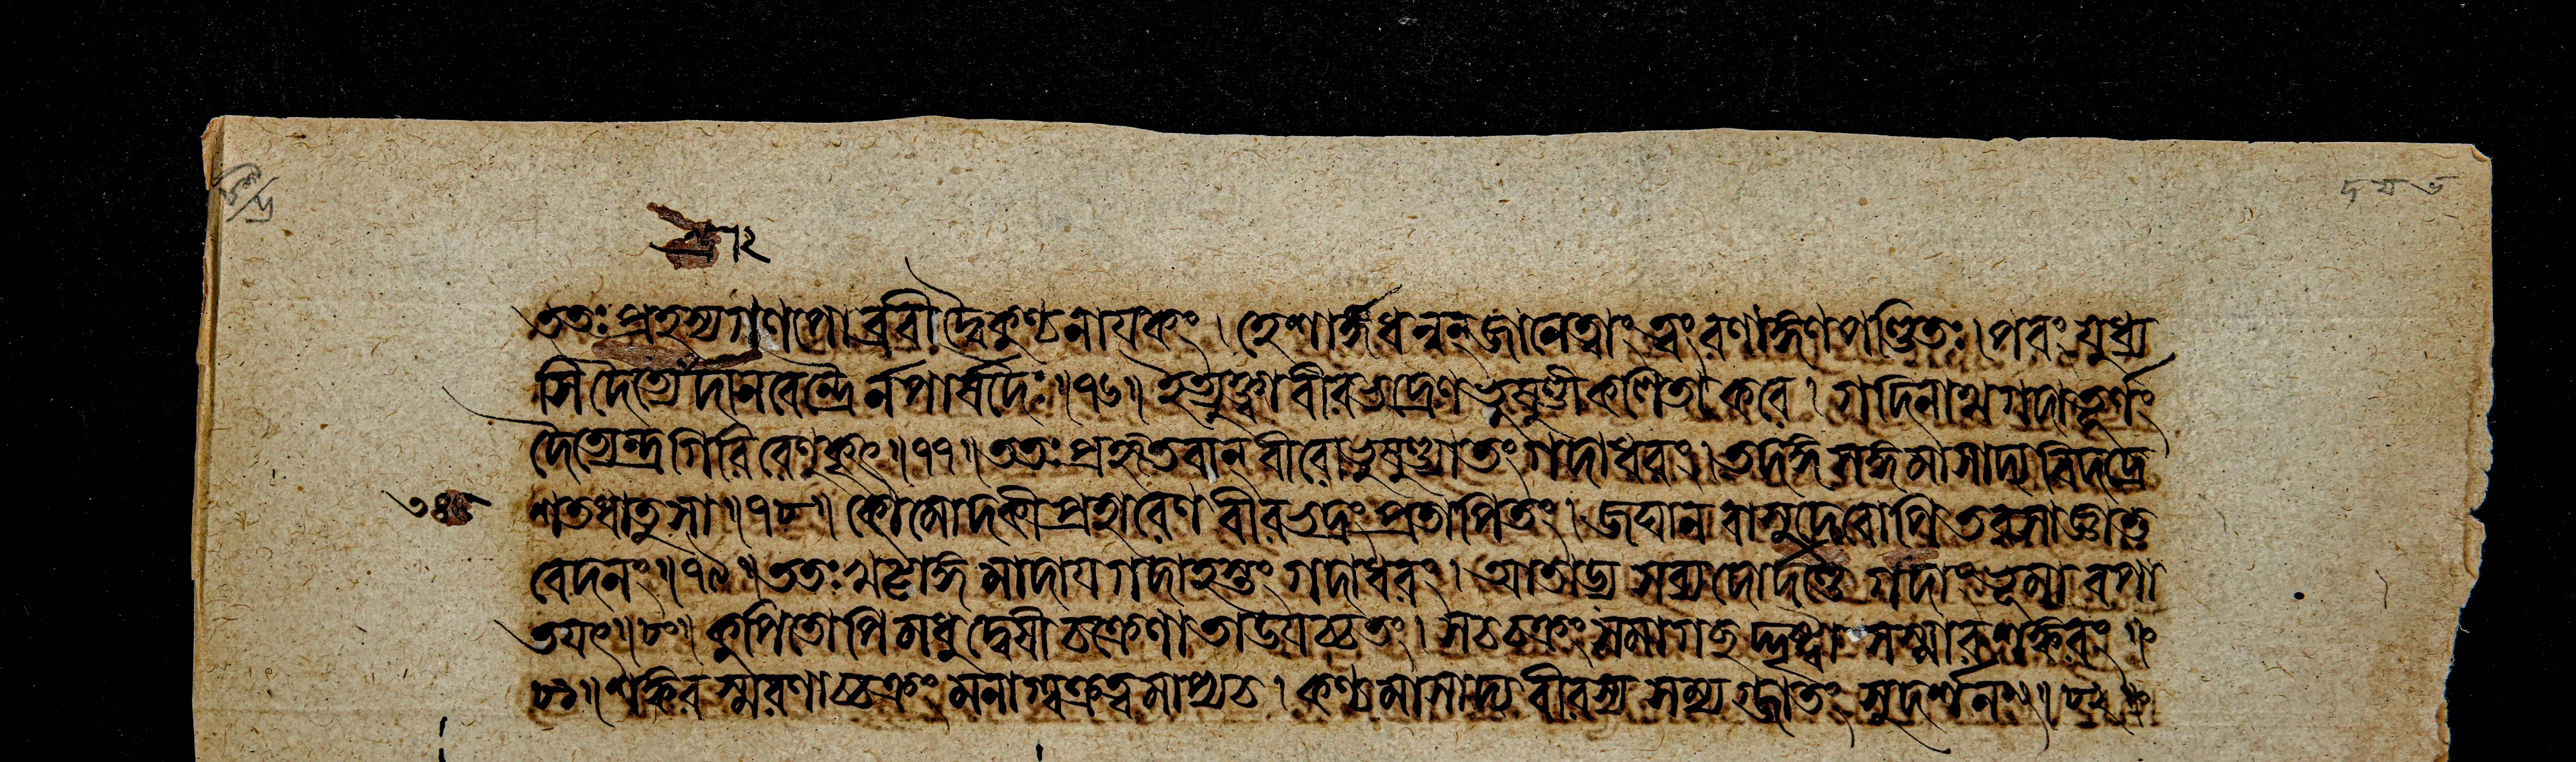 ততঃ প্রহস্য গণপো ব্রবীদ্বৈকুণ্ঠনাযকং । হে শার্ঙ্গধন্বন্ন জানে ত্বাং ত্বং রণাঙ্গণপণ্ডিতঃ । পরং যুধ্য
সি দৈত্যেদানবেন্দ্রৈর্ন পার্ষদৈঃ ॥ ৭৬ ॥ ইত্যুক্ত্বা বীরভদ্রেণ ভুষুণ্ডী কণিতা করে । গদিনাথ গদা তূর্ণং
দৈত্যেন্দ্রগিরিরেণুকৃৎ ॥ ৭৭ ॥ ততঃ প্রহৃতবান্ বীরো ভুষুণ্ড্যা তং গদাধরং । তদঙ্গসঙ্গমাসাদ্য বিদদ্রে
শতধা তু সা ॥ ৭৮ ॥ কৌমোদকীপ্রহারেণ বীরভদ্রং প্রতাপিতং । জঘান বাসুদেবোপি তরসাজ্ঞাত
বেদনং ॥ ৭৯ ॥ ততঃ খট্বাঙ্গমাদায গদাহস্তং গদাধরং । আতাড্য সব্যদোর্দণ্ডে গদাং ভূম্যাবপা
তযৎ ॥ ৮০ ॥ কুপিতোপি মধুদ্বেষী চক্রেণাতাডযচ্চ তং । স চ চক্রং সমাগচ্ছদ্দৃষ্ট্বা সস্মার শঙ্করং ॥
৮১ ॥ শঙ্করস্মরণাচ্চক্রং মনাগ্বক্রত্বমাপ্য চ । কণ্ঠমাসাদ্য বীরস্য সম্যগ্জাতং সুদর্শনং ॥ ৮২ ॥